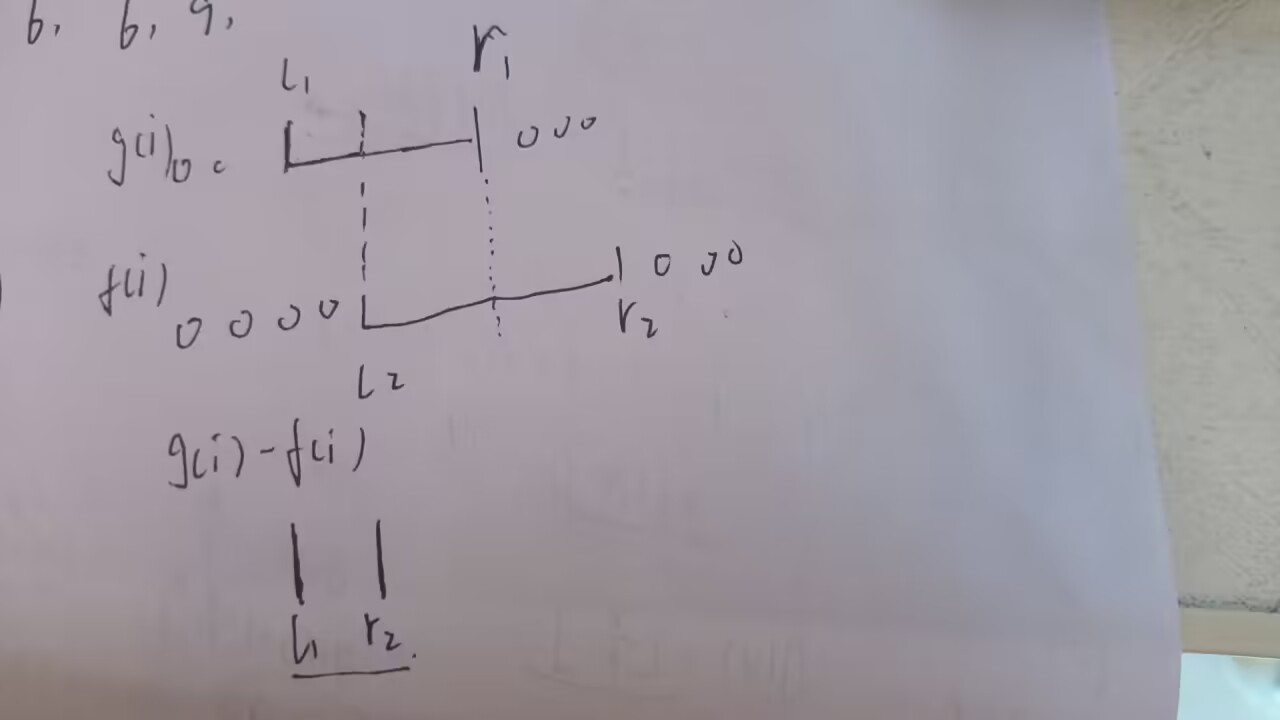 6, 6, 9,
l1 r1
g(i) 0 0 0 0 0
f(i) 0 0 0 0 0 0 0
r2
l2
g(i)-f(i)
l1 r2.